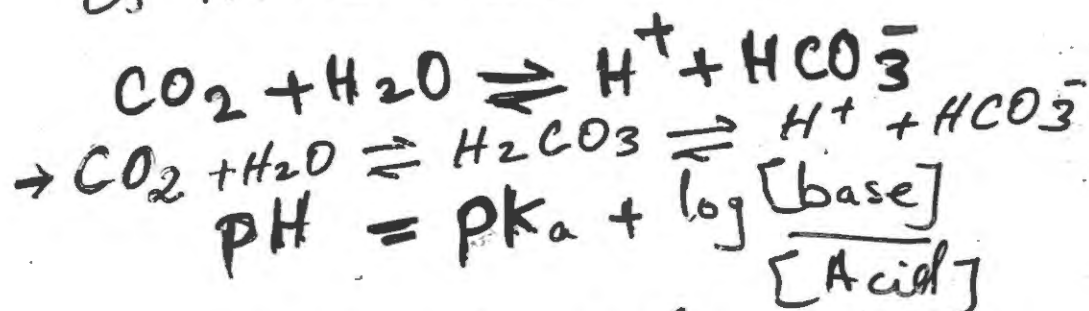 CO₂ + H₂O ⇌ H⁺ + HCO₃⁻
→ CO₂ + H₂O ⇌ H₂CO₃ ⇌ H⁺ + HCO₃⁻
pH = pKₐ + log [base]
[Acid]